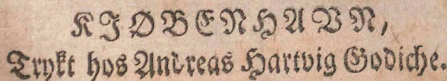 KIØBENHAVN,
Trykt hos Andreas Hartvig Godiche.